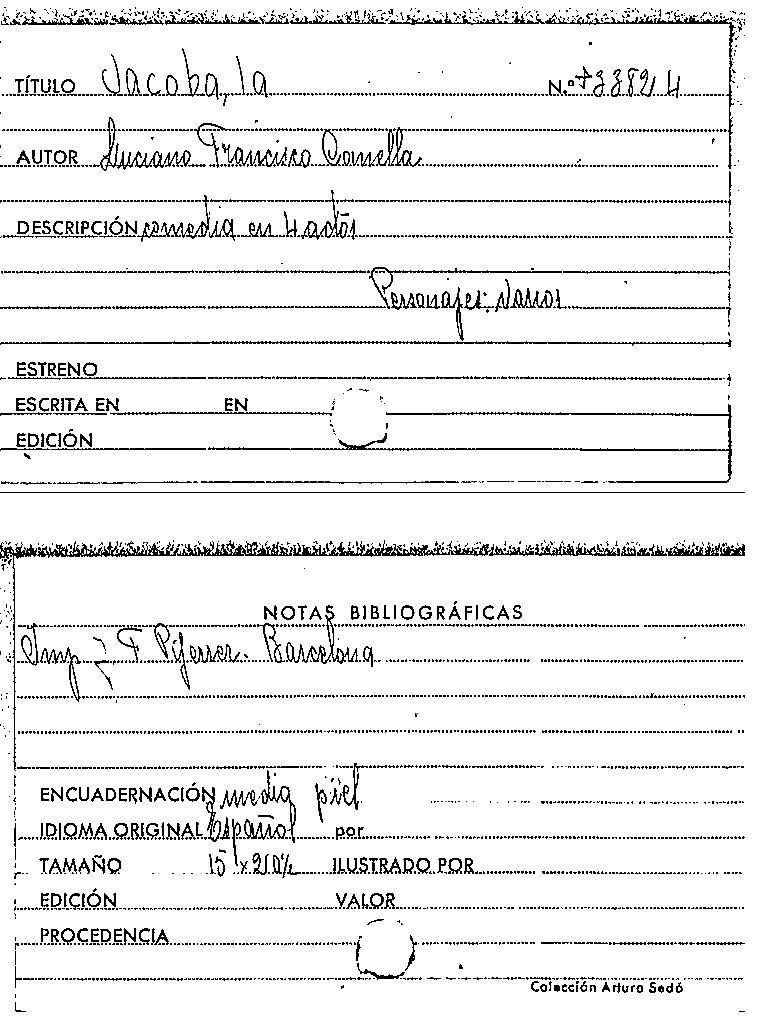 TÍTULO Jacoba, la N.º 33824
AUTOR Luciano Francisco Comella
DESCRIPCIÓN comedia en 4 actos
Personajes: varios
ESTRENO
ESCRITA EN EN
EDICIÓN
NOTAS BIBLIOGRÁFICAS
Imp F Piferrer. Barcelona
ENCUADERNACIÓN media piel
IDIOMA ORIGINAL Español por
TAMAÑO 15 x 210% ILUSTRADO POR
EDICIÓN VALOR
PROCEDENCIA
Colección Arturo Sedó